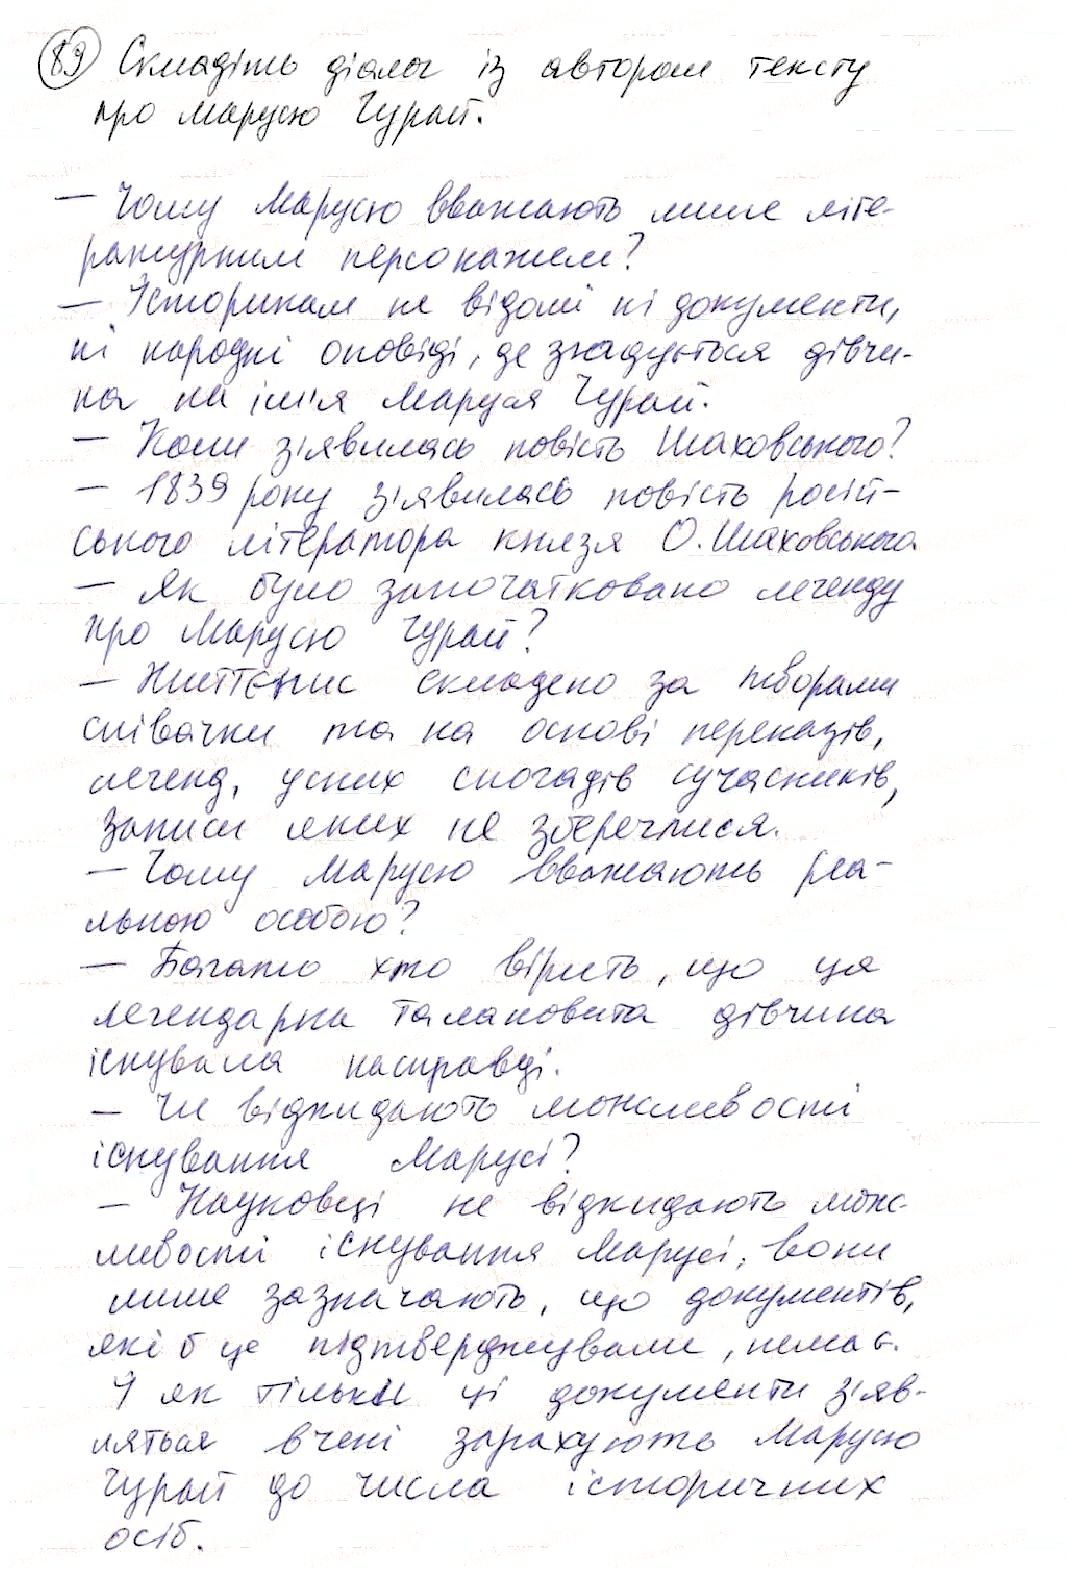 89 Складіть діалог із автором тексту
про Марусю Чурай.
— Чому Марусю вважають лише літе-
ратурним персонажем?
— Історикам не відомі ні документи,
ні народні оповіді, де згадується дівчи-
на на ім'я Маруся Чурай.
— Коли з'явилась повість Шаховського?
— 1839 року з'явилась повість росій-
ського літератора князя О. Шаховського
— Як було започатковано легенду
про Марусю Чурай?
— Життєпис складено за творами
співачки та на основі переказів,
легенд, усних спогадів сучасників,
записи яких не збереглися.
— Чому Марусю вважають реа-
льною особою?
— Багато хто вірить, що ця
легендарна талановита дівчина
існувала насправді.
— Чи відкидають можливості
існування Марусі?
— Науковці не відкидають мож-
ливості існування Марусі, вони
лише зазначають, що документів,
які б це підтверджували, немає.
І як тільки ці документи з'яв-
ляться вчені зарахують Марусю
Чурай до числа історичних
осіб.